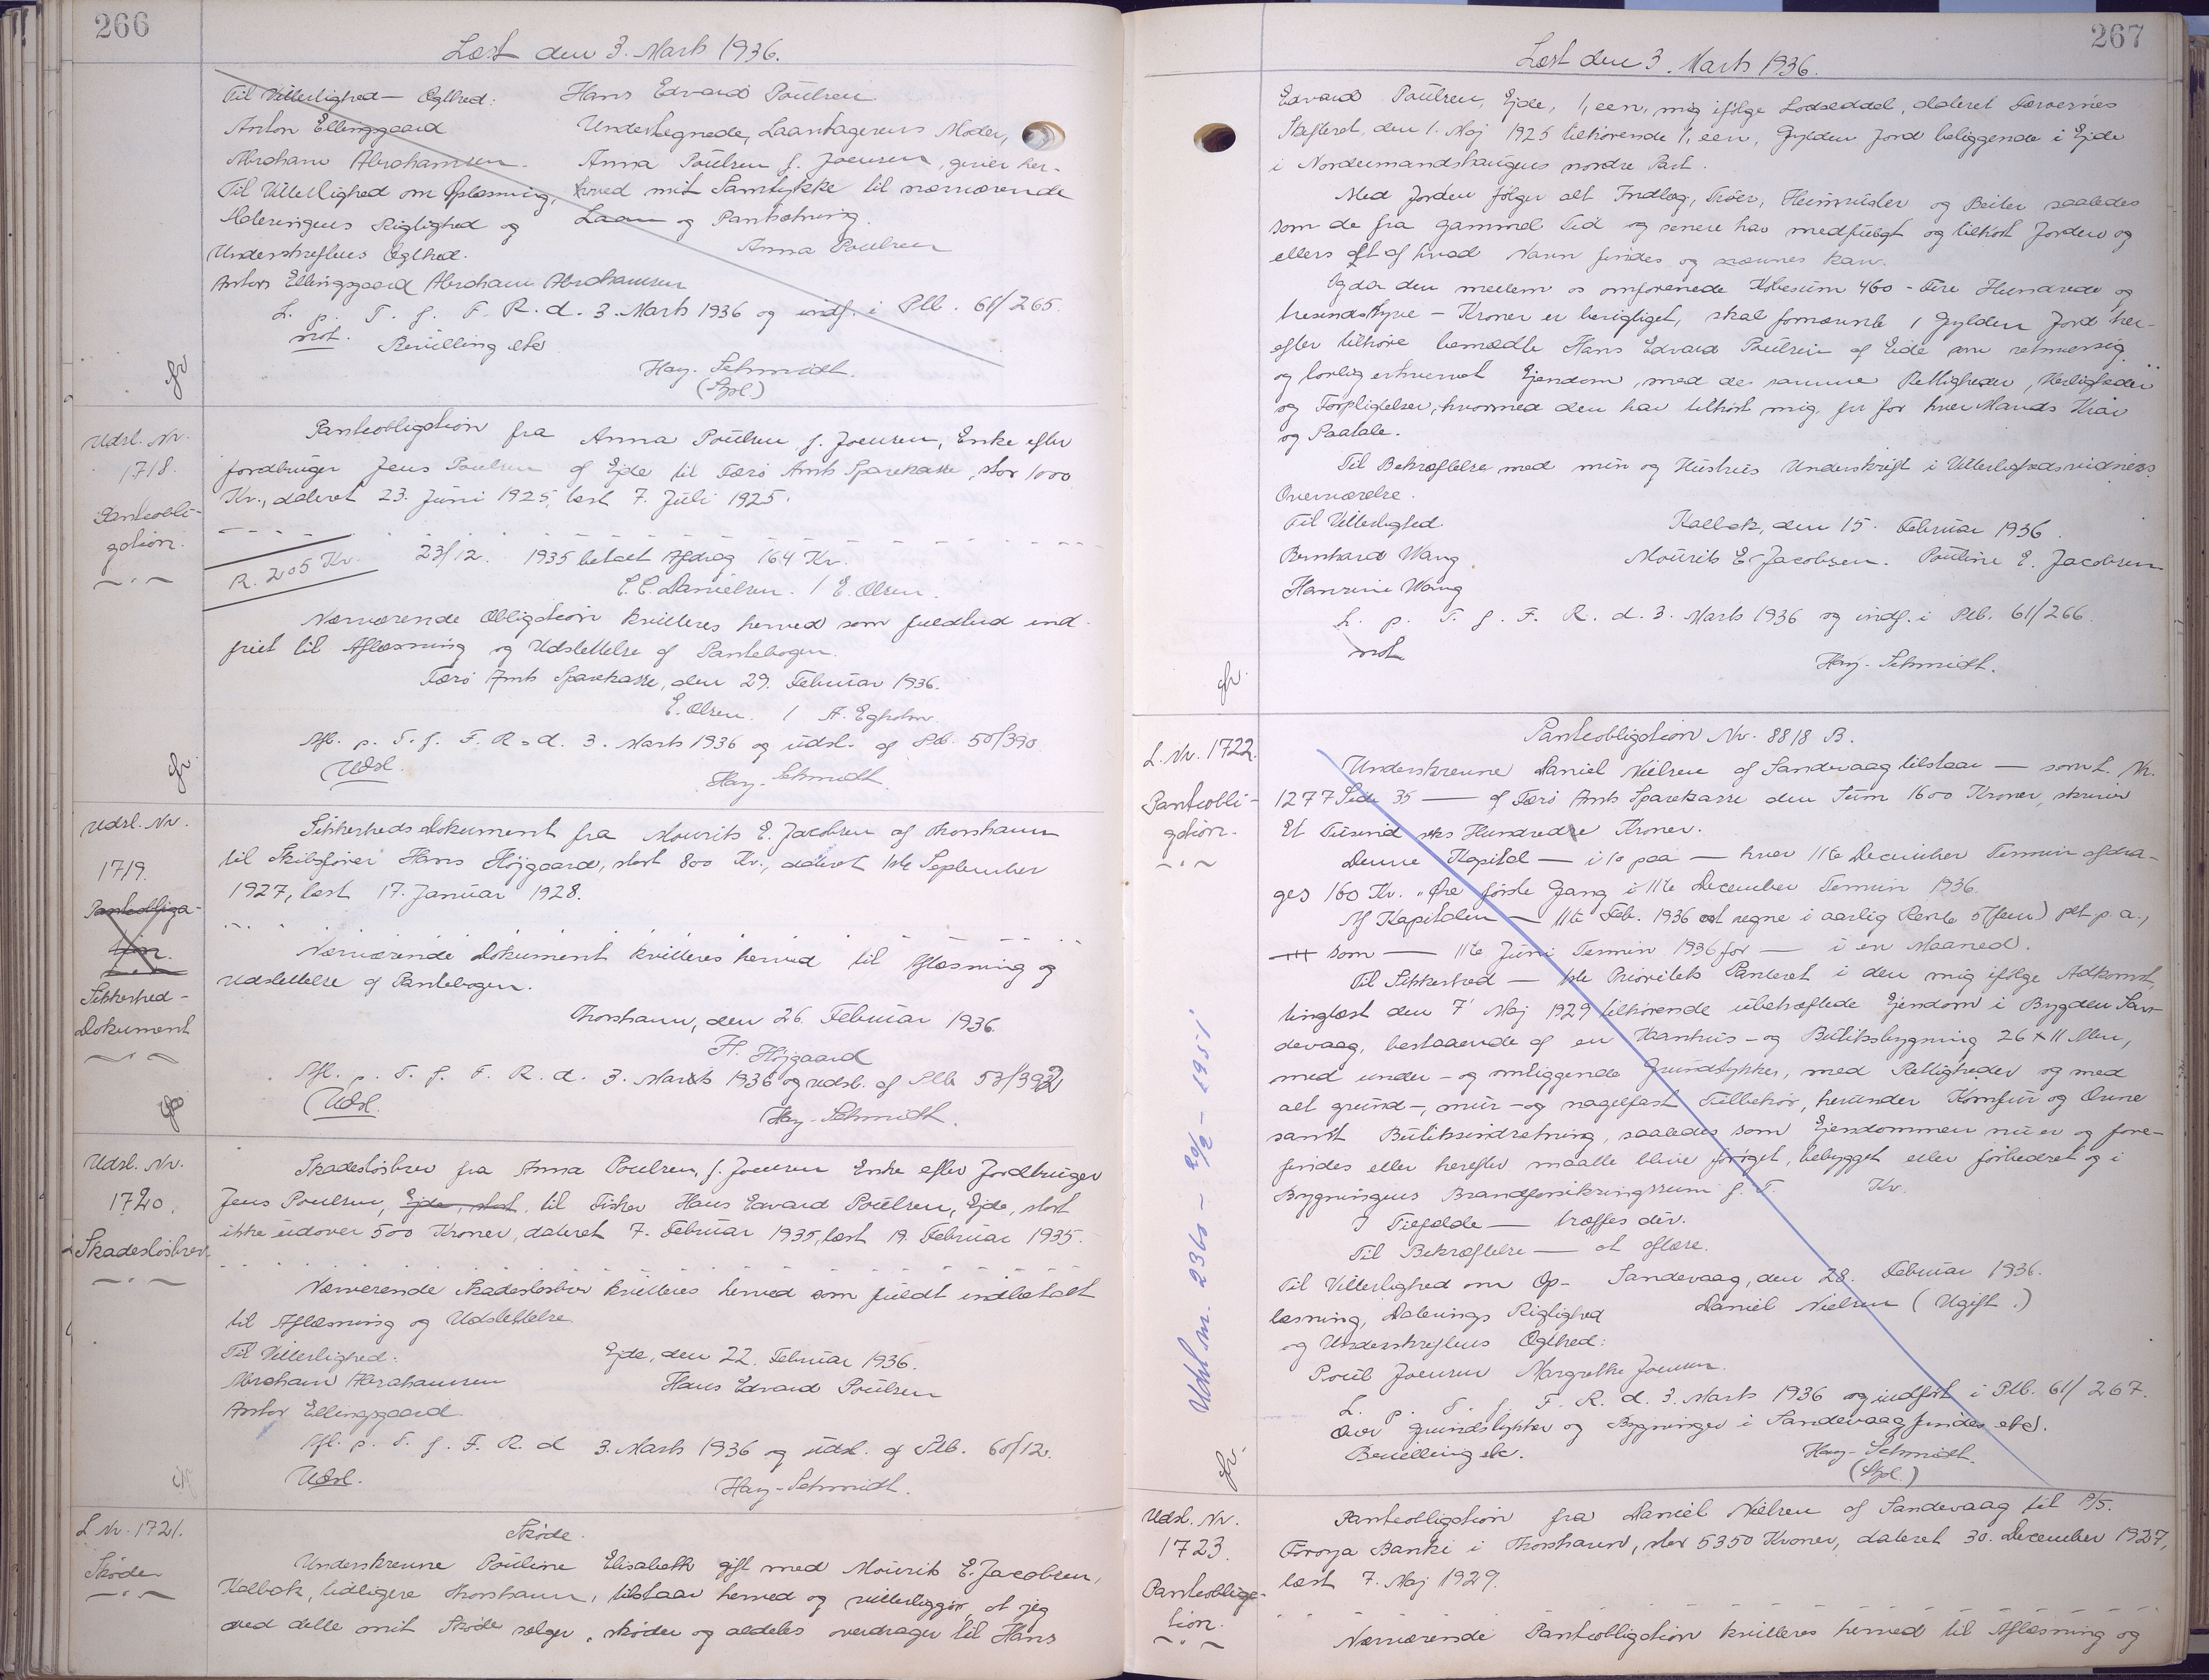 266
Læst den 3. Marts 1936.
Til Vitterlighed - Ægthed:
Hans Edvard Poulsen
Anton Ellinggaard
Undertegnede, Laantagerens Moder,
Abraham Abrahamsen.
Anna Poulsen f. Joensen, giver her-
Til Vitterlighed om Oplæsning,
ved mit Samtykke til nærværende
Dateringens Rigtighed og
Laan og Pantsætning.
Underskriftens Ægthed.
Anna Poulsen
Anton Ellingsgaard Abraham Abrahamsen
L. p. T. f. F. R. d. 3. Marts 1936 og indf. i Ptb. 61/265.
not. Bevilling etc
Hay-Schmidt.
(Spl.)
Udsl. Nr.
1718.
Panteobli-
gation.
Panteobligation fra Anna Poulsen f. Joensen, Enke efter
Jordbruger Jens Poulsen af Ejde til Færø Amts Sparekasse, stor 1000
Kr., dateret 23. Juni 1925, læst 7. Juli 1925.
R. 205 Kr. 23/12. 1935 betalt Afdrag 164 Kr.
C.C. Danielsen. / E. Olsen.
Nærværende Obligation kvitteres herved som fuldtud ind-
friet til Aflæsning og Udslettelse af Pantebogen.
Færø Amts Sparekasse, den 29. Februar 1936.
E. Olsen. / A. Egholm.
Afl. p. T. f. F. R. d. 3. Marts 1936 og udsl. af Ptb. 50/390.
Udsl.
Hay-Schmidt.
Udsl. Nr.
1719.
Panteobliga-
tion.
Sikkerhed-
Dokument
Sikkerhedsdokument fra Mourits E. Jacobsen af Thorshavn
til Skibsfører Hans Højgaard, stort 800 Kr., dateret 1ste September
1927, læst 17. Januar 1928.
Nærværende Dokument kvitteres herved til Aflæsning og
Udslettelse af Pantebogen.
Thorshavn, den 26. Februar 1936.
H. Højgaard
Afl. p. T. f. F. R. d. 3. Marts 1936 og udsl. af Ptb. 53/392
Udsl.
Hay-Schmidt.
Udsl. Nr.
1720.
Skadesløsbrev.
Skadesløsbrev fra Anna Poulsen, f. Joensen Enke efter Jordbruger
Jens Poulsen, Ejde, stort, til Fisker Hans Edvard Poulsen, Ejde, stort
ikke udover 500 Kroner, dateret 7. Februar 1935, læst 19. Februar 1935.
Nærværende Skadesløsbrev kvitteres herved som fuldt indbetalt
til Aflæsning og Udslettelse
Til Vitterlighed:
Ejde, den 22. Februar 1936.
Abraham Abrahamsen
Hans Edvard Poulsen
Anton Ellingsgaard.
Afl. p. T. f. F. R. d 3. Marts 1936 og udsl. af Ptb. 60/12.
Udsl.
Hay-Schmidt.
L. Nr. 1721.
Skøde
Skøde.
Underskrevne Pouline Elisabeth gift med Mourits E. Jacobsen,
Kalbak, tidligere Thorshavn, tilstaar herved og vitterliggør, at jeg
ved dette mit Skøde sælger, skøder og aldeles overdrager til Hans
267
Læst den 3. Marts 1936.
Edvard Poulsen, Ejde, 1, een, mig ifølge Lodseddel, dateret Færøernes
Skifteret, den 1. Maj 1925 tilhørende 1, een, Gylden Jord beliggende i Ejde
i Nordenmandshaugens nordre Part.
Med Jorden følger alt Indlæg, Trøer, Heimrustir og Beiter saaledes
som de fra gammel Tid og senere har medfulgt og tilhørt Jorden og
ellers alt af hvad Navn findes og nævnes kan.
Og da den mellem os omforenede Købesum 460 - Fire Hundrede og
tresindstyve - Kroner er berigtiget, skal fornævnte 1 Gylden Jord her-
efter tilhøre bemældte Hans Edvard Poulsen af Eide som retmæssig
og lovlig erhvervet Ejendom, med de samme Rettigheder, Herligheder
og Forpligtelser, hvormed den har tilhørt mig, fri for hver Mands Krav
og Paatale.
Til Bekræftelse med min og Hustrus Underskrift i Vitterlighedsvidners
Overværelse.
Til Vitterlighed.
Kalbak, den 15. Februar 1936.
Bernhard Wang
Mourits E. Jacobsen. Pouline E. Jacobsen
Hansine Wang
L. p. T. f. F. R. d. 3. Marts 1936 og indf. i Ptb. 61/266.
not
Hay-Schmidt.
L. Nr. 1722.
Panteobli-
gation.
Panteobligation Nr. 8818 B.
Underskrevne Daniel Nielsen af Sandevaag tilstaar — som L. Nr.
1277 Side 35 — af Færø Amts Sparekasse den Sum 1600 Kroner, skriver
Et Tusind seks Hundrede Kroner.
Denne Kapital — i 10 paa — hver 11te December Termin afdra-
ges 160 Kr. " Øre første Gang i 11te December Termin 1936.
Af Kapitalen — 11te Feb. 1936 at regne i aarlig Rente 5 (fem) pct p.a.,
som — 11te Juni Termin 1936 for — i en Maaned.
Til Sikkerhed — 1ste Prioritets Panteret i den mig ifølge Adkomst,
tinglæst den 7' Maj 1929 tilhørende ubehæftede Ejendom i Bygden San-
devaag, bestaaende af en Vaanhus- og Butiksbygning 26 x 11 Alen,
med under- og omliggende Grundstykker, med Rettigheder og med
alt grund-, mur- og nagelfast Tilbehør, herunder Komfur og Ovne
samt Butiksindretning, saaledes som Ejendommen nu er og fore-
findes eller herefter maatte blive forøget, bebygget eller forbedret og i
Bygningens Brandforsikringssum f. T. Kr.
I Tilfælde — træffes dér.
Til Bekræftelse — at aflæse.
Til Vitterlighed om Op-
Sandevaag, den 28. Februar 1936.
læsning, Daterings Rigtighed
Daniel Nielsen (Ugift.)
og Underskriftens Ægthed:
Poul Joensen Margrethe Joensen.
L. p. T. f. F. R. d. 3. Marts 1936 og indført i Ptb. 61/267.
Over Grundstykker og Bygninger i Sandevaag findes etc.
Bevilling etc.
Hay-Schmidt.
(Spl.)
Udsl nr. 2360 - 20/2 - 1951
Udsl. Nr.
1723.
Panteobliga-
tion.
Panteobligation fra Daniel Nielsen af Sandevaag til P/F.
Føroya Banki i Thorshavn, stor 5350 Kroner, dateret 30. December 1927,
læst 7. Maj 1929.
Nærværende Panteobligation kvitteres herved til Aflæsning og